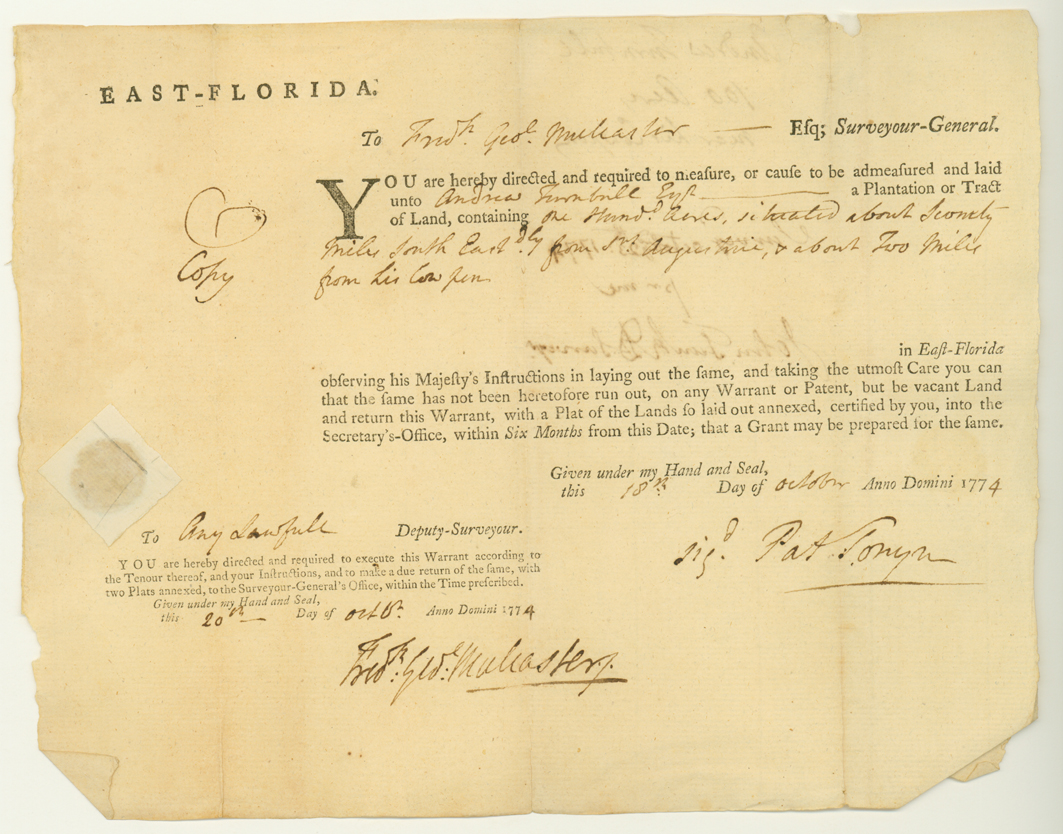 EAST-FLORIDA.
To Fredk. Geo. Mulcaster — Esq; Surveyour-General.
YOU are hereby directed and required to measure, or cause to be admeasured and laid
unto Andrew Turnbull Esqr — a Plantation or Tract
of Land, containing One Hundd. Acres, situated about Seventy
Miles South Eastdly from St. Augustine, & about Two Miles
from his Cow pen
Copy
in East-Florida
observing his Majesty's Instructions in laying out the same, and taking the utmost Care you can
that the same has not been heretofore run out, on any Warrant or Patent, but be vacant Land
and return this Warrant, with a Plat of the Lands so laid out annexed, certified by you, into the
Secretary's-Office, within Six Months from this Date; that a Grant may be prepared for the same.
Given under my Hand and Seal,
this 18th Day of October Anno Domini 1774
sigd. Pat. Tonyn
To Any Lawfull Deputy-Surveyour.
YOU are hereby directed and required to execute this Warrant according to
the Tenour thereof, and your Instructions, and to make a due return of the same, with
two Plats annexed, to the Surveyour-General's Office, within the Time prescribed.
Given under my Hand and Seal,
this 20th — Day of Octbr. Anno Domini 1774
Fredk. Geo. Mulcaster